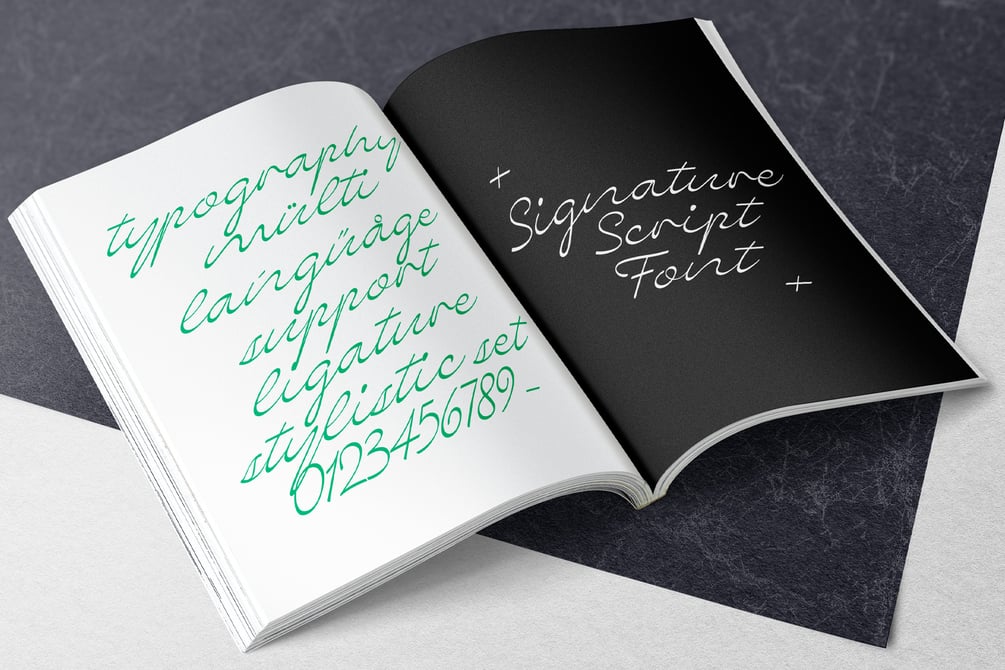 typography
mülti
laingüåge
support
ligature
stylistic set
0123456789 -
+
Signature
Script
Font
+